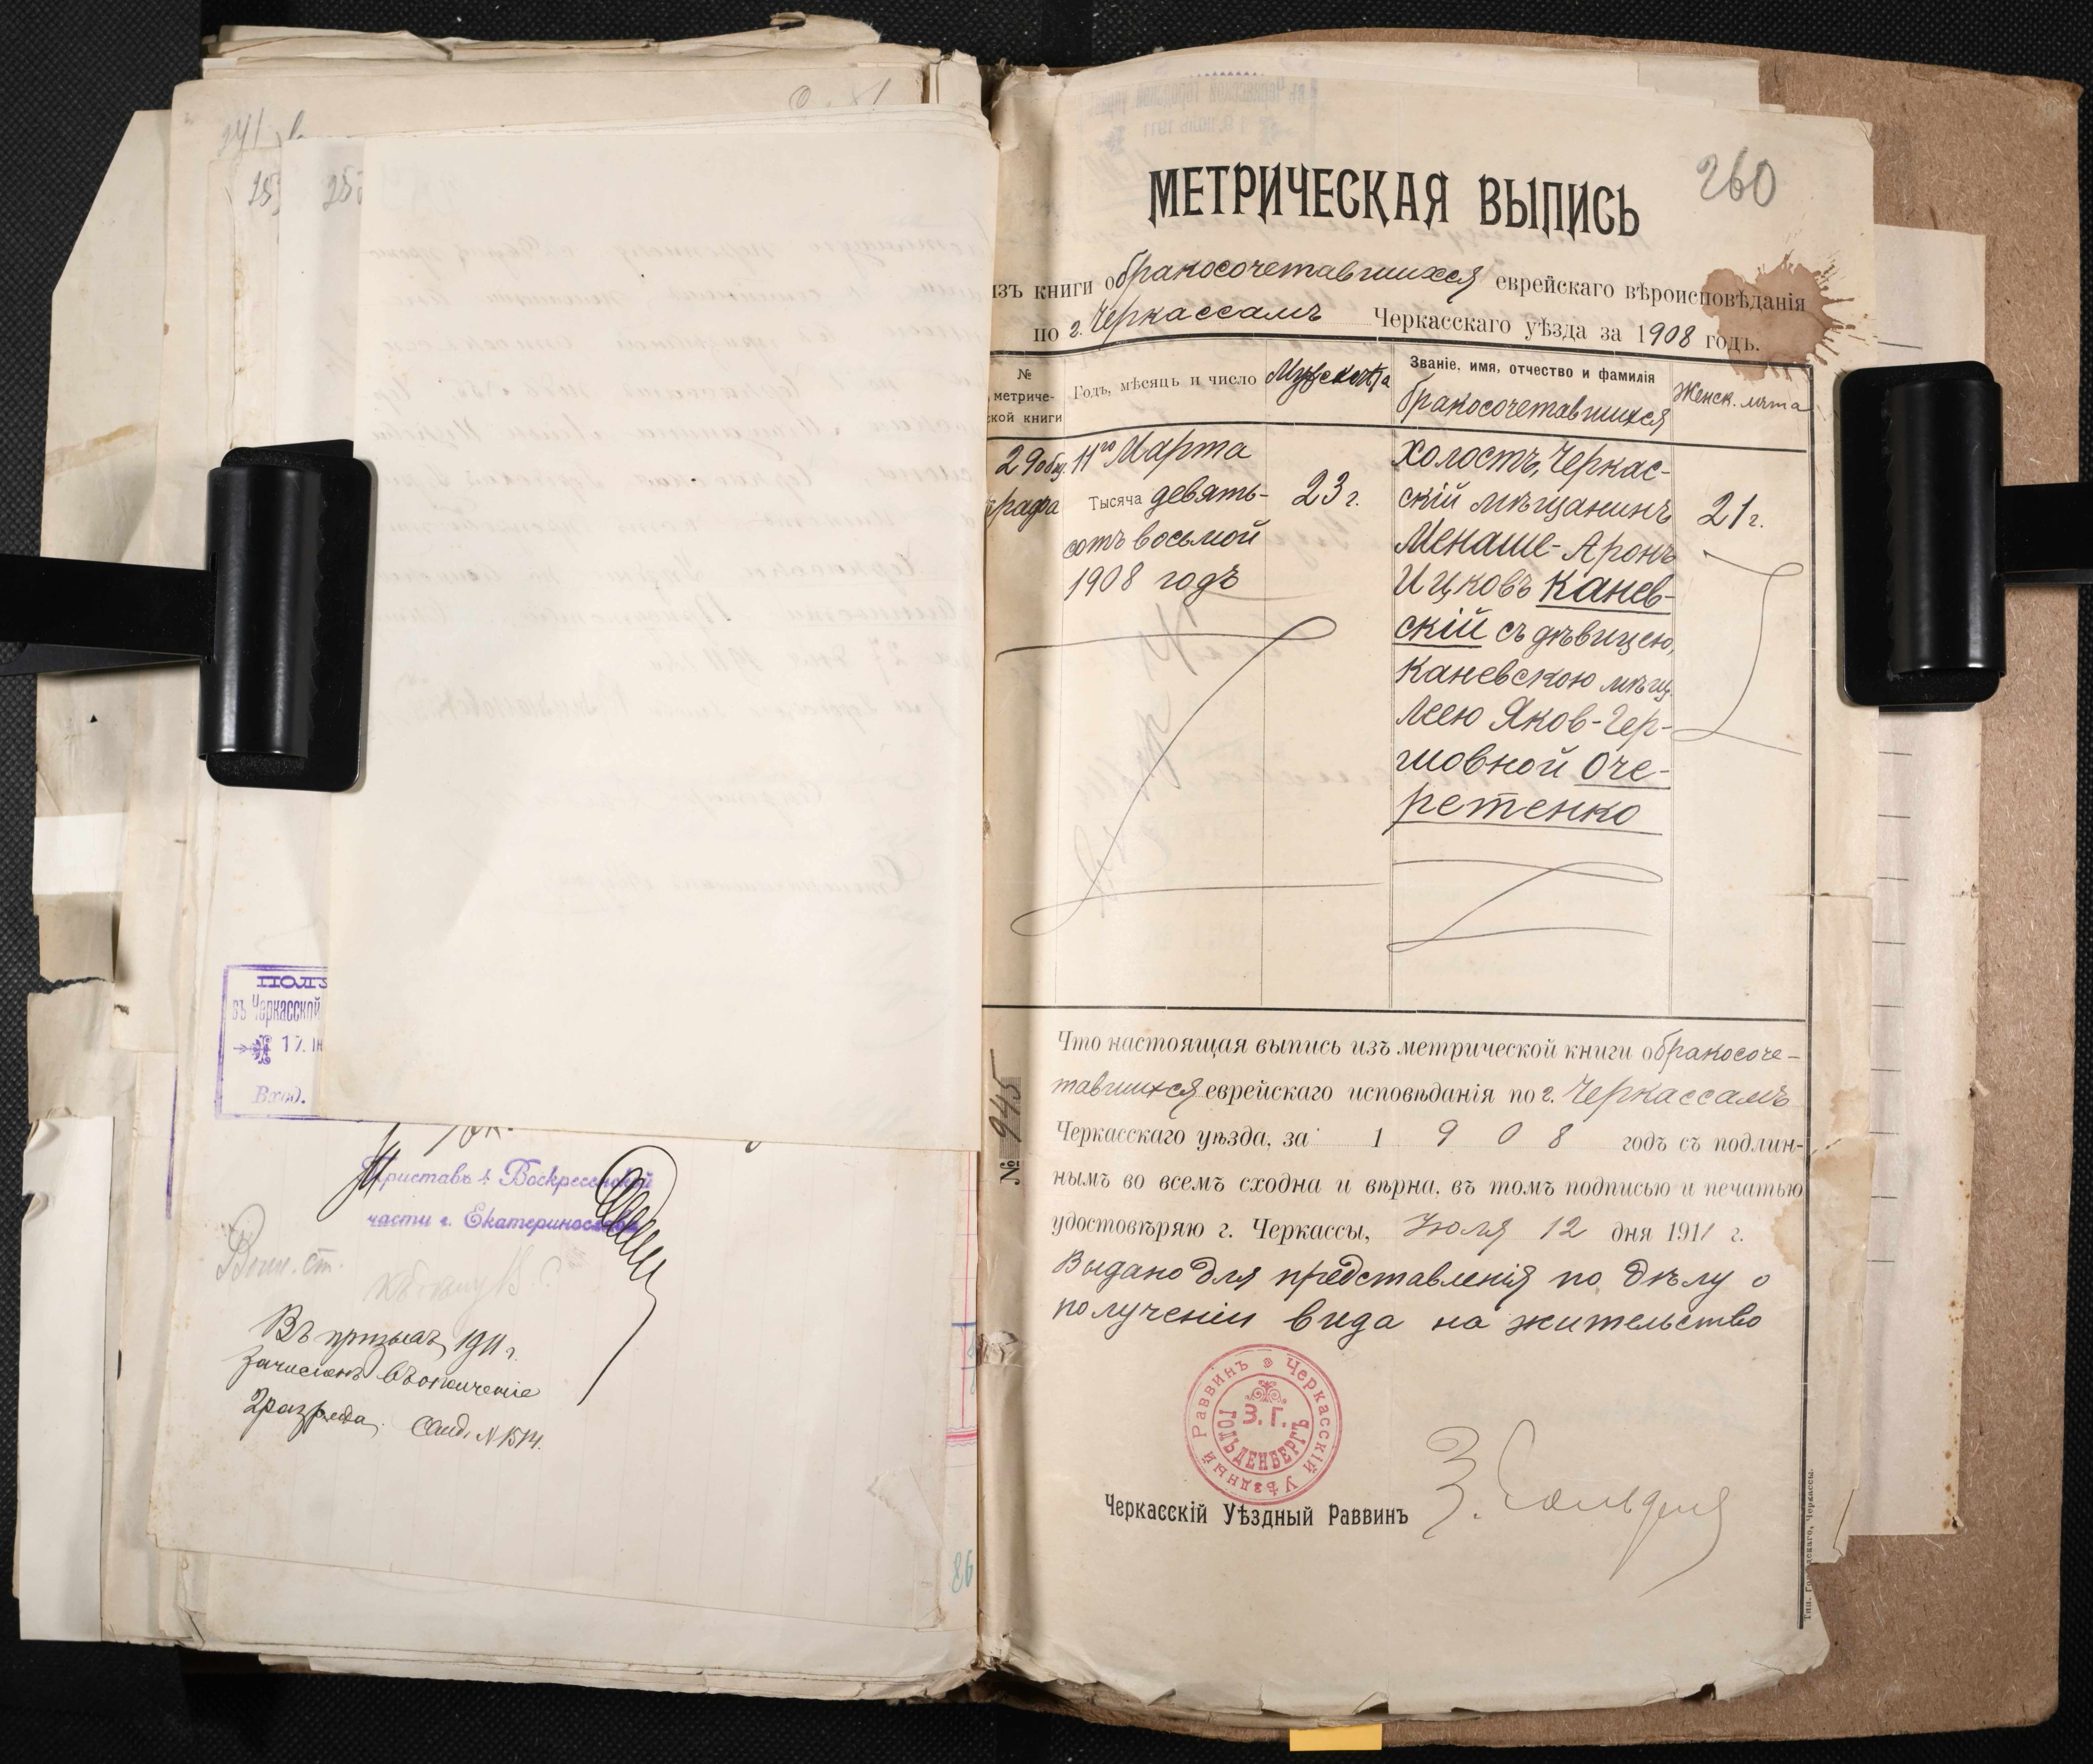 241
18
258
ПОЛУ
въ Черкасской
17. ІН
Вход.
Приставъ 4. Воскресенской
части г. Екатеринослава
Воин. ст.
Въ призывъ 1911 г.
зачисленъ въ ополченіе
2 разряда. Свид. № 1514.
86
260
МЕТРИЧЕСКАЯ ВЫПИСЬ
изъ книги о бракосочетавшихся еврейскаго вѣроисповѣданія
по г. Черкассамъ Черкасскаго уѣзда за 1908 годъ.
№ метриче-ской книги
Годъ, мѣсяцъ и число
Мужск. лѣта
Званіе, имя, отчество и фамилія
бракосочетавшихся
Женск. лѣта
29 общ.
графа
11го Марта
Тысяча девять-
сотъ восьмой
1908 годъ
23 г.
Холостъ, Черкас-
скій мѣщанинъ
Менаше-Аронъ
Ицковъ Канев-
скій съ дѣвицею,
Каневскою мѣщ.
Леею Яков-Гер-
шовной Оче-
ретенко
21 г.
№ 945
Что настоящая выпись изъ метрической книги о бракосоче-
тавшихся еврейскаго исповѣданія по г. Черкассамъ
Черкасскаго уѣзда, за 1908 годъ съ подлин-
нымъ во всемъ сходна и вѣрна, въ томъ подписью и печатью
удостовѣряю г. Черкассы, Іюля 12 дня 1911 г.
Выдано для представленія по дѣлу о
полученіи вида на жительство
Черкасскій Уѣздный Раввинъ
З. Г.
ГОЛЬДЕНБЕРГЪ
Черкасскій Уѣздный Раввинъ